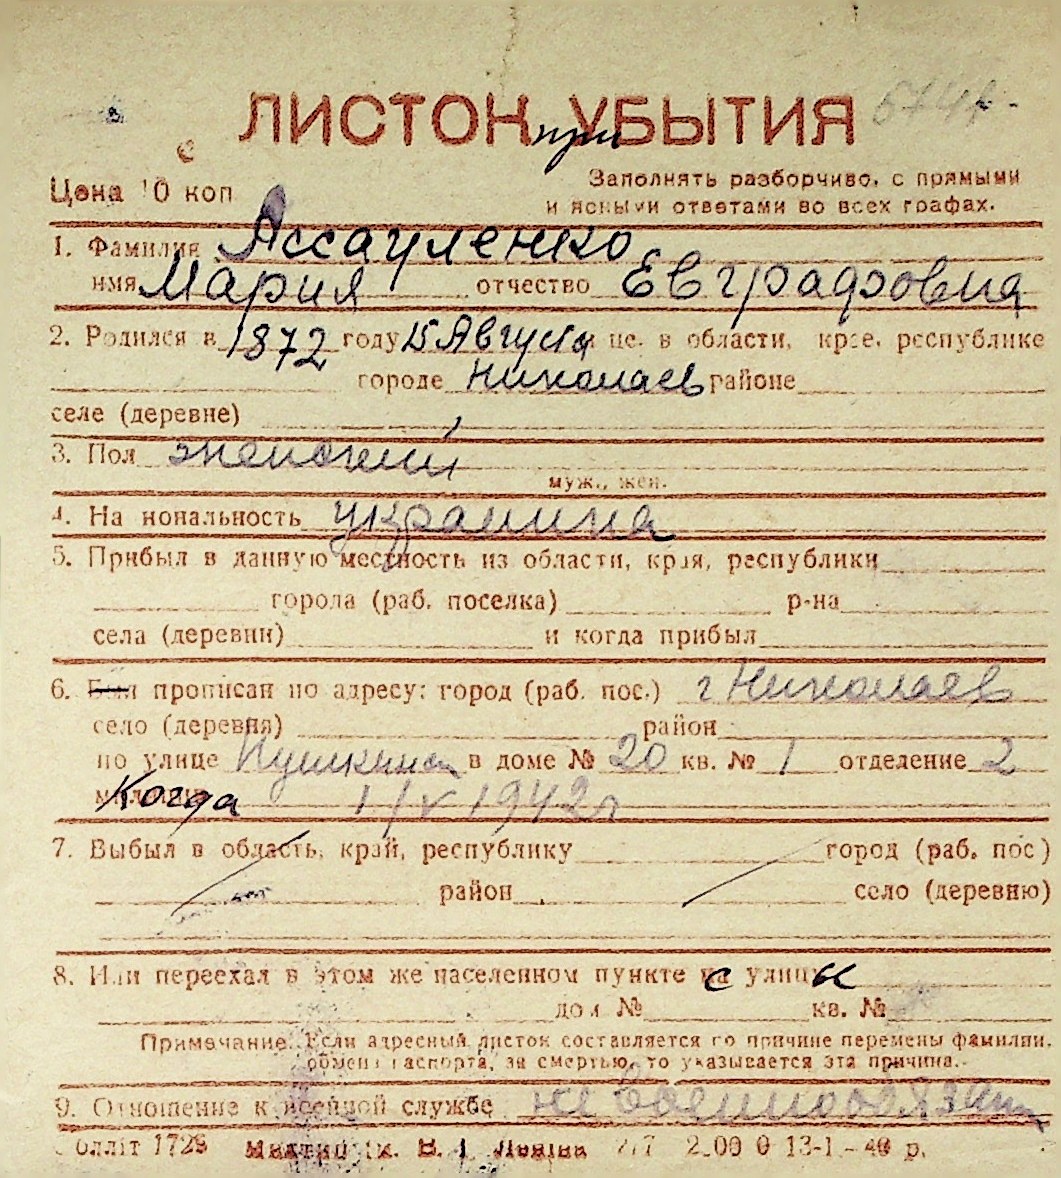 ЛИСТОК УБЫТИЯ
при
Цена 10 коп
Заполнять разборчиво, с прямыми
и ясными ответами во всех графах.
1. Фамилия Ассауленко
имя Мария отчество Евграфовна
2. Родился в 1872 году 15 Августа це. в области, крае, республике
городе Николаев районе
селе (деревне)
3. Пол женский
муж., жен.
4. Национальность украинка
5. Прибыл в данную местность из области, края, республики
города (раб. поселка) р-на
села (деревни) и когда прибыл
6. Был прописан по адресу: город (раб. пос.) г Николаев
село (деревня) район
по улице Пушкинск в доме № 20 кв. № 1 отделение 2
Когда 1/V 1942 г
7. Выбыл в область, край, республику город (раб. пос)
район село (деревню)
8. Или переехал в этом же населенном пункте с улицы
дом № кв. №
Примечание: Если адресный листок составляется по причине перемены фамилии,
обмена паспорта, за смертью, то указывается эта причина.
9. Отношение к военной службе не военнообязан
1729 В. І. Леніна 13-1-40 р.